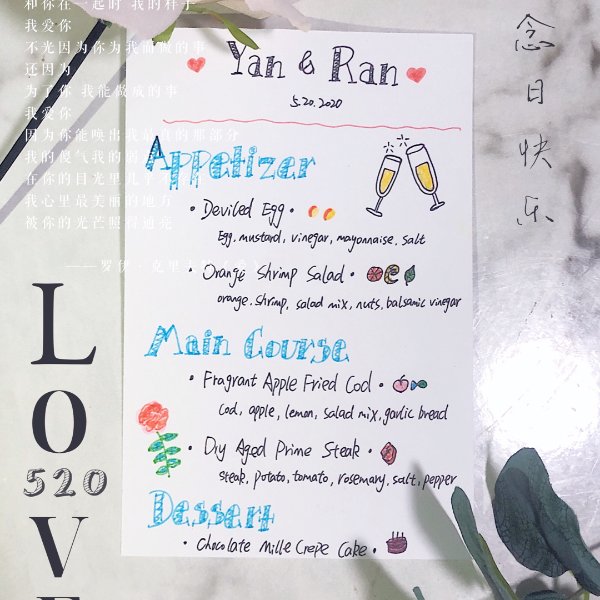 和你在一起时 我的样子
我爱你
不光因为你为我而做的事
还因为
为了你 我能做成的事
我爱你
因为你能唤出我最真的那部分
我的傻气我的弱点
在你的目光里几乎不
我心里最美丽的地方
被你的光芒照得通亮
——罗伊·克里夫特《爱》
念日快乐
LOVE
520
Yan & Ran
5.20.2020
Appetizer
• Deviled Egg •
Egg, mustard, vinegar, mayonnaise, salt
• Orange Shrimp Salad •
orange, shrimp, salad mix, nuts, balsamic vinegar
Main Course
• Fragrant Apple Fried Cod •
Cod, apple, lemon, salad mix, garlic bread
• Dry Aged Prime Steak •
steak, potato, tomato, rosemary, salt, pepper
Dessert
• Chocolate Mille Crepe Cake •